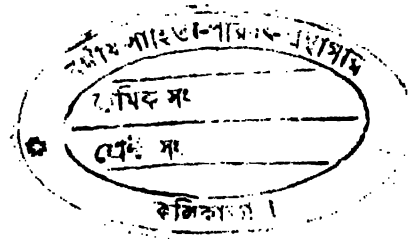 বঙ্গীয় সাহিত্য-পরিষৎ গ্রন্থাগার
ক্রমিক সং
শ্রেণী সং
কলিকাতা ।